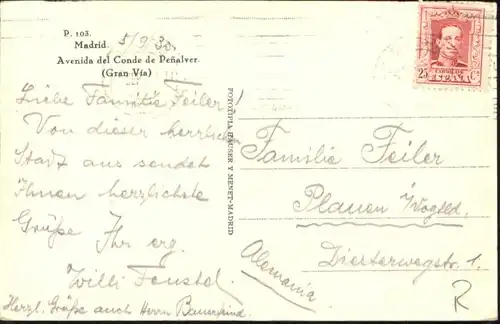 P. 103.
Madrid. 5/9.30
Avenida del Conde de Peñalver.
(Gran Vía)
Liebe Familie Feiler!
Von dieser herrlichen
Stadt aus sendet
Ihnen herzlichste
Grüße Ihr erg.
Willi Feustel.
Herzl. Grüße auch Herrn Bauerfeind.
FOTOTIPIA HAUSER Y MENET-MADRID
25 Cs
CORREOS
ESPAÑA
Familie Feiler
Plauen i/Vogtld.
Diesterwegstr. 1.
Alemania
R